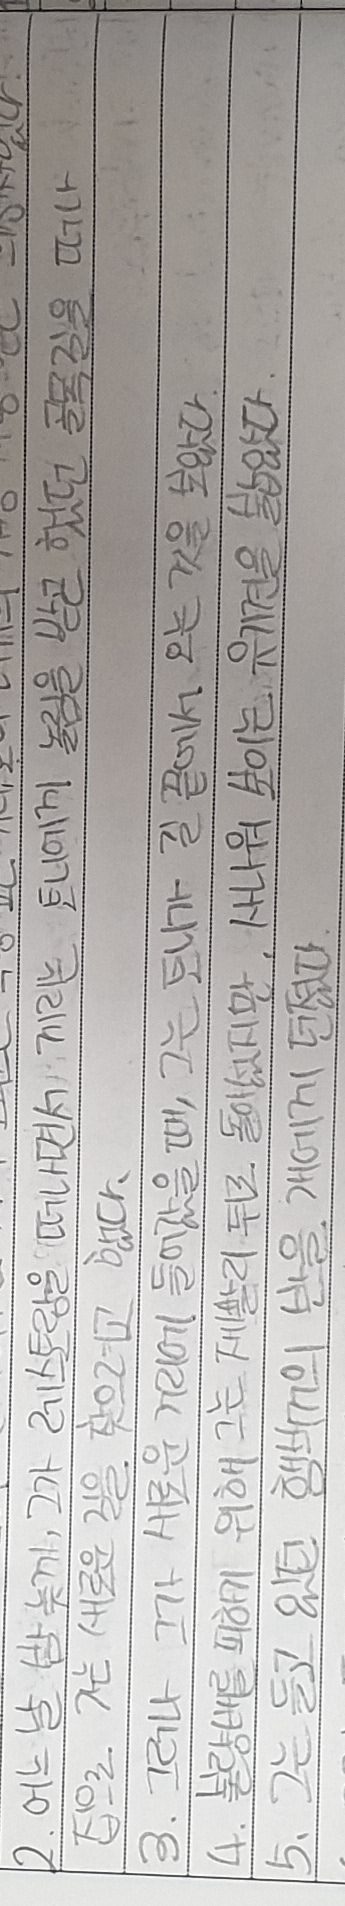 2. 어느 날 밤 늦게, 그가 레스토랑을 떠나면서, 게리는 토니에게 놀림을 받곤 했던 골목길을 떠나
집으로 가는 새로운 길을 찾으려고 했다.
3. 그러나 그가 새로운 거리에 들어갔을 때, 그는 토니가 길 끝에서 오는 것을 보았다.
4. 불량배를 피하기 위해 그는 재빨리 뒤로 돌아섰지만, 사나워 보이는 유기견을 밟았다.
5. 그는 들고 있던 햄버거의 반을 개에게 던졌다.